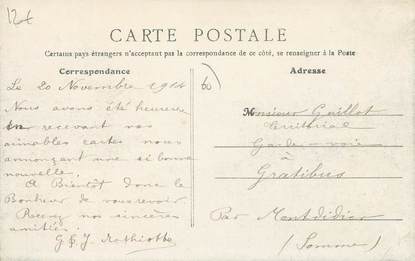 12€
CARTE POSTALE
Certains pays étrangers n'acceptant pas la correspondance de ce côté, se renseigner à la Poste
Correspondance
Le 20 Novembre 1914
Nous avons été heureux
en recevant vos
aimables cartes nous
annonçant une si bonne
nouvelle.
A Bientôt donc le
Bonheur de vous revoir
Recevez nos sincères
amitiés
G & J
60
Adresse
Monsieur Gaillot
Territorial
Garde-voie
à
Gratibus
Par Montdidier
(Somme)